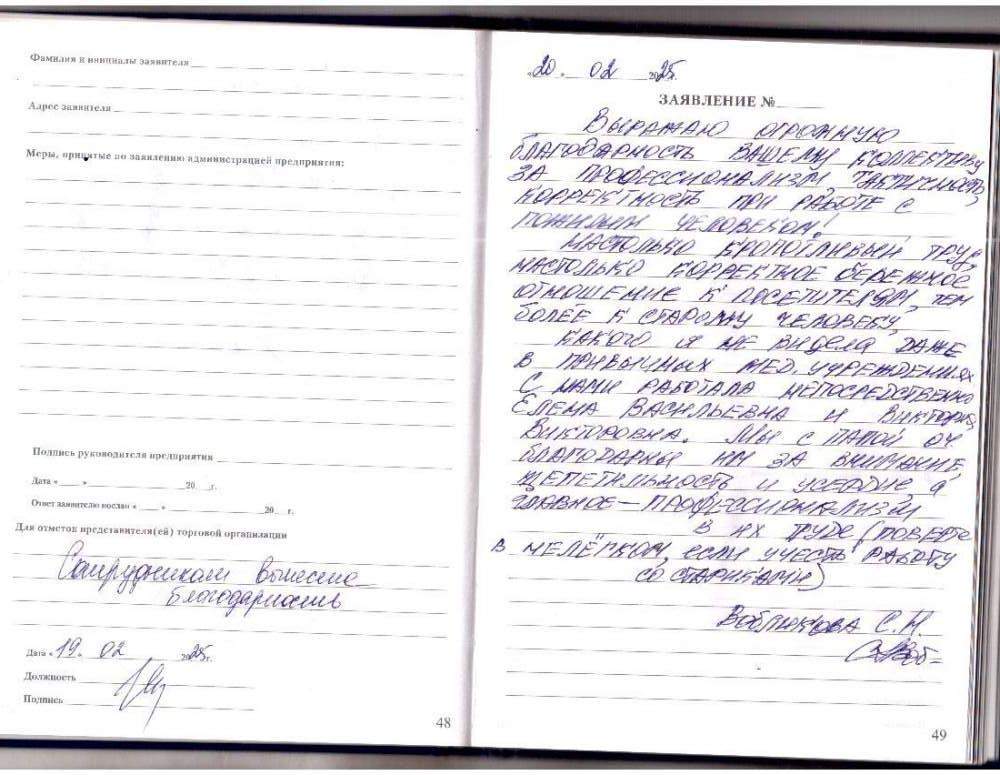 Фамилия и инициалы заявителя
Адрес заявителя
Меры, принятые по заявлению администрацией предприятия:
Подпись руководителя предприятия
Дата « » 20 г.
Ответ заявителю послан « » 20 г.
Для отметок представителя(ей) торговой организации
Сотрудникам вынесена
благодарность
Дата «19. 02 2025г.
Должность
Подпись
48
«20» 02 2025г.
ЗАЯВЛЕНИЕ №
Выражаю огромную
благодарность вашему коллективу
за профессионализм, тактичность,
корректность при работе с
пожилым человеком!
Настолько кропотливый труд,
настолько корректное бережное
отношение к посетителям, тем
более к старому человеку,
какого я не видела даже
в привычных мед. учреждениях
С нами работала непосредственно
Елена Васильевна и Виктория
Викторовна. Мы с папой оч.
благодарны им за внимание,
щепетильность и усердие, а
главное — профессионализм
в их труде (поверьте
в нелёгком, если учесть работу
со стариками)
С.Н.
49